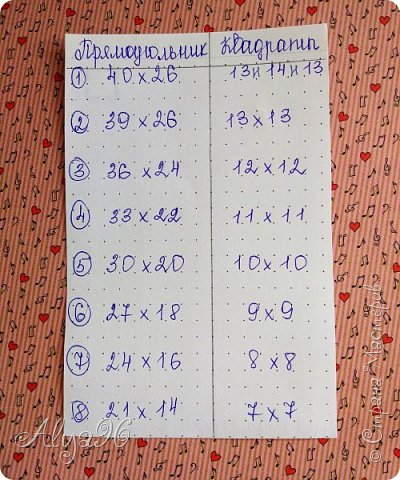 Прямоугольник Квадраты
① 40 х 26 13 и 14 и 13
② 39 х 26 13 х 13
③ 36 х 24 12 х 12
④ 33 х 22 11 х 11
⑤ 30 х 20 10 х 10
⑥ 27 х 18 9 х 9
⑦ 24 х 16 8 х 8
⑧ 21 х 14 7 х 7
Alya96
© Страна Мастеров